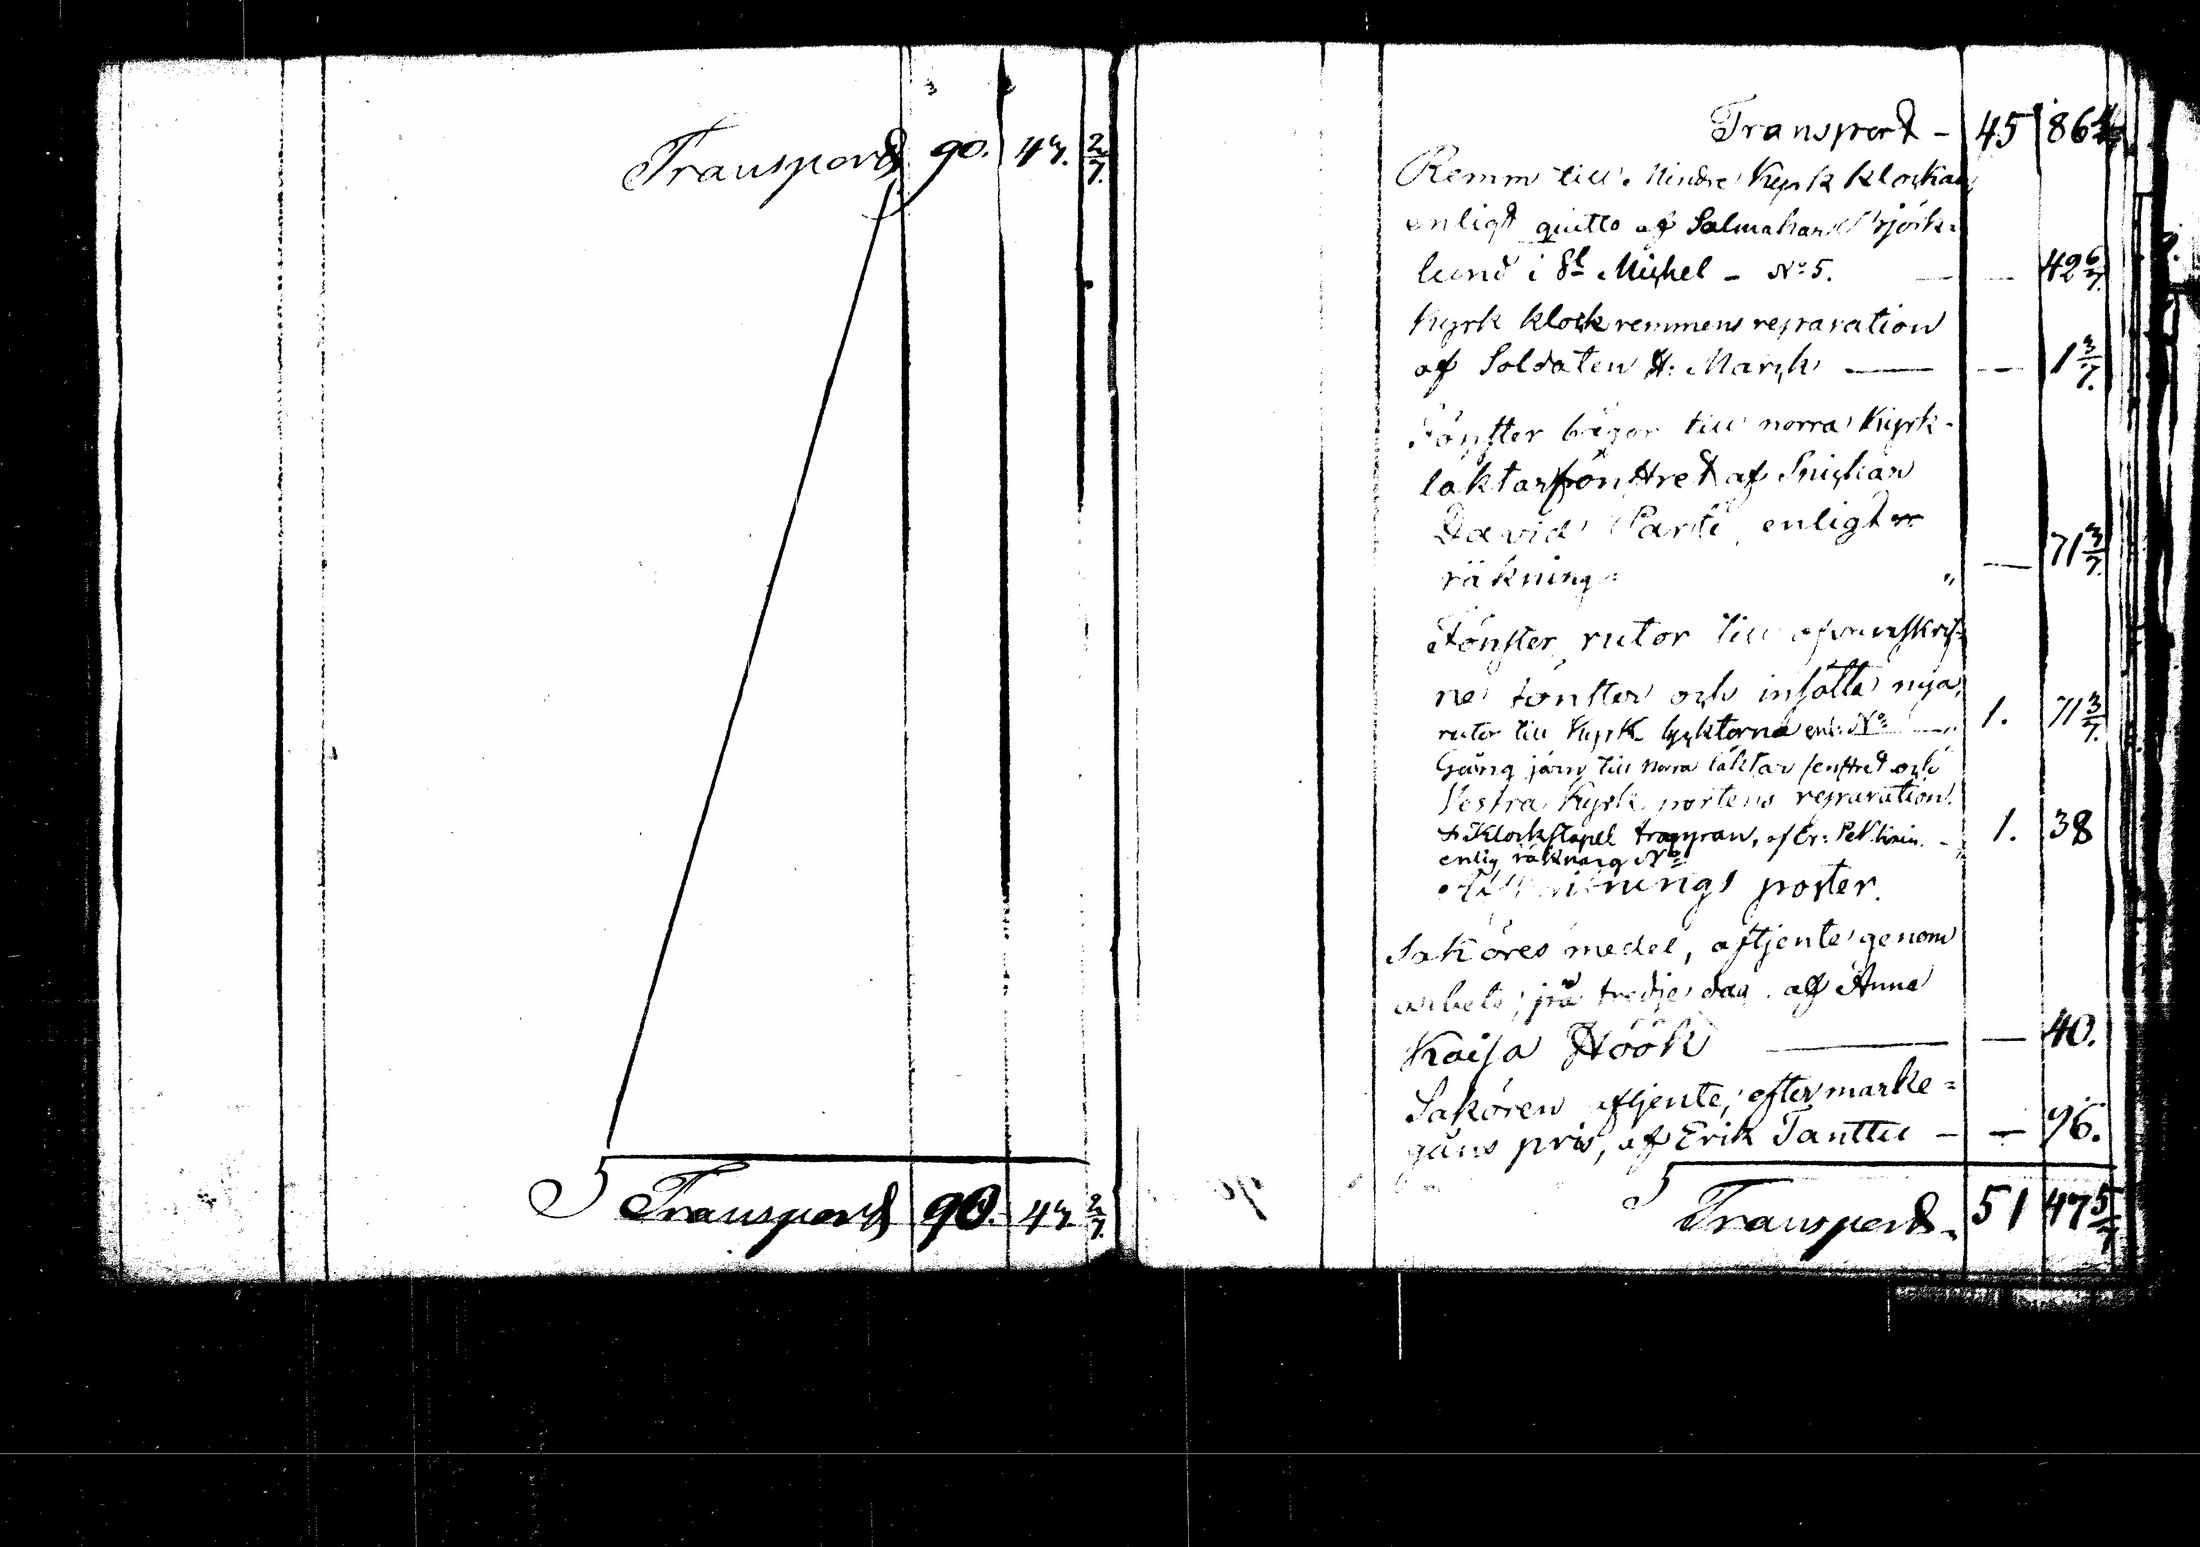 Transport 90. 47. 2/7.
S Transport 90. 47 2/7.
Transport - 45 86
Remm till Mindre Kyrk klockan
enligt quitto af Salmakaren Björk=
lund i St Michel - No 5. — — 42 6/7.
Kyrk klock remmens reparation
af Soldaten H: March — — 1 3/7.
Fönster bågar till norra Kyrk-
läktarfönstret af Snickar
David Partti enligt
räkning = " — 71 3/7.
Fönster rutor till ofvanskrif-
ne fönster och insätta nya
rutor till Kyrk lycktorna enl: No — 1. 71 3/7.
Gång järn till Norra läktar fenstret och
Vestra Kyrk portens reparation.
Klockstapel trappan, af Er: - 1. 38
enlig räkning No
poster.
Saköres medel, aftjente genom
arbete, på tredje dag. af Anna
Kaisa Höök — — 40.
Sakören aftjente, efter marke=
gåns pris, af Erik Tanttu - — 96.
S Transport 51 47 5/7